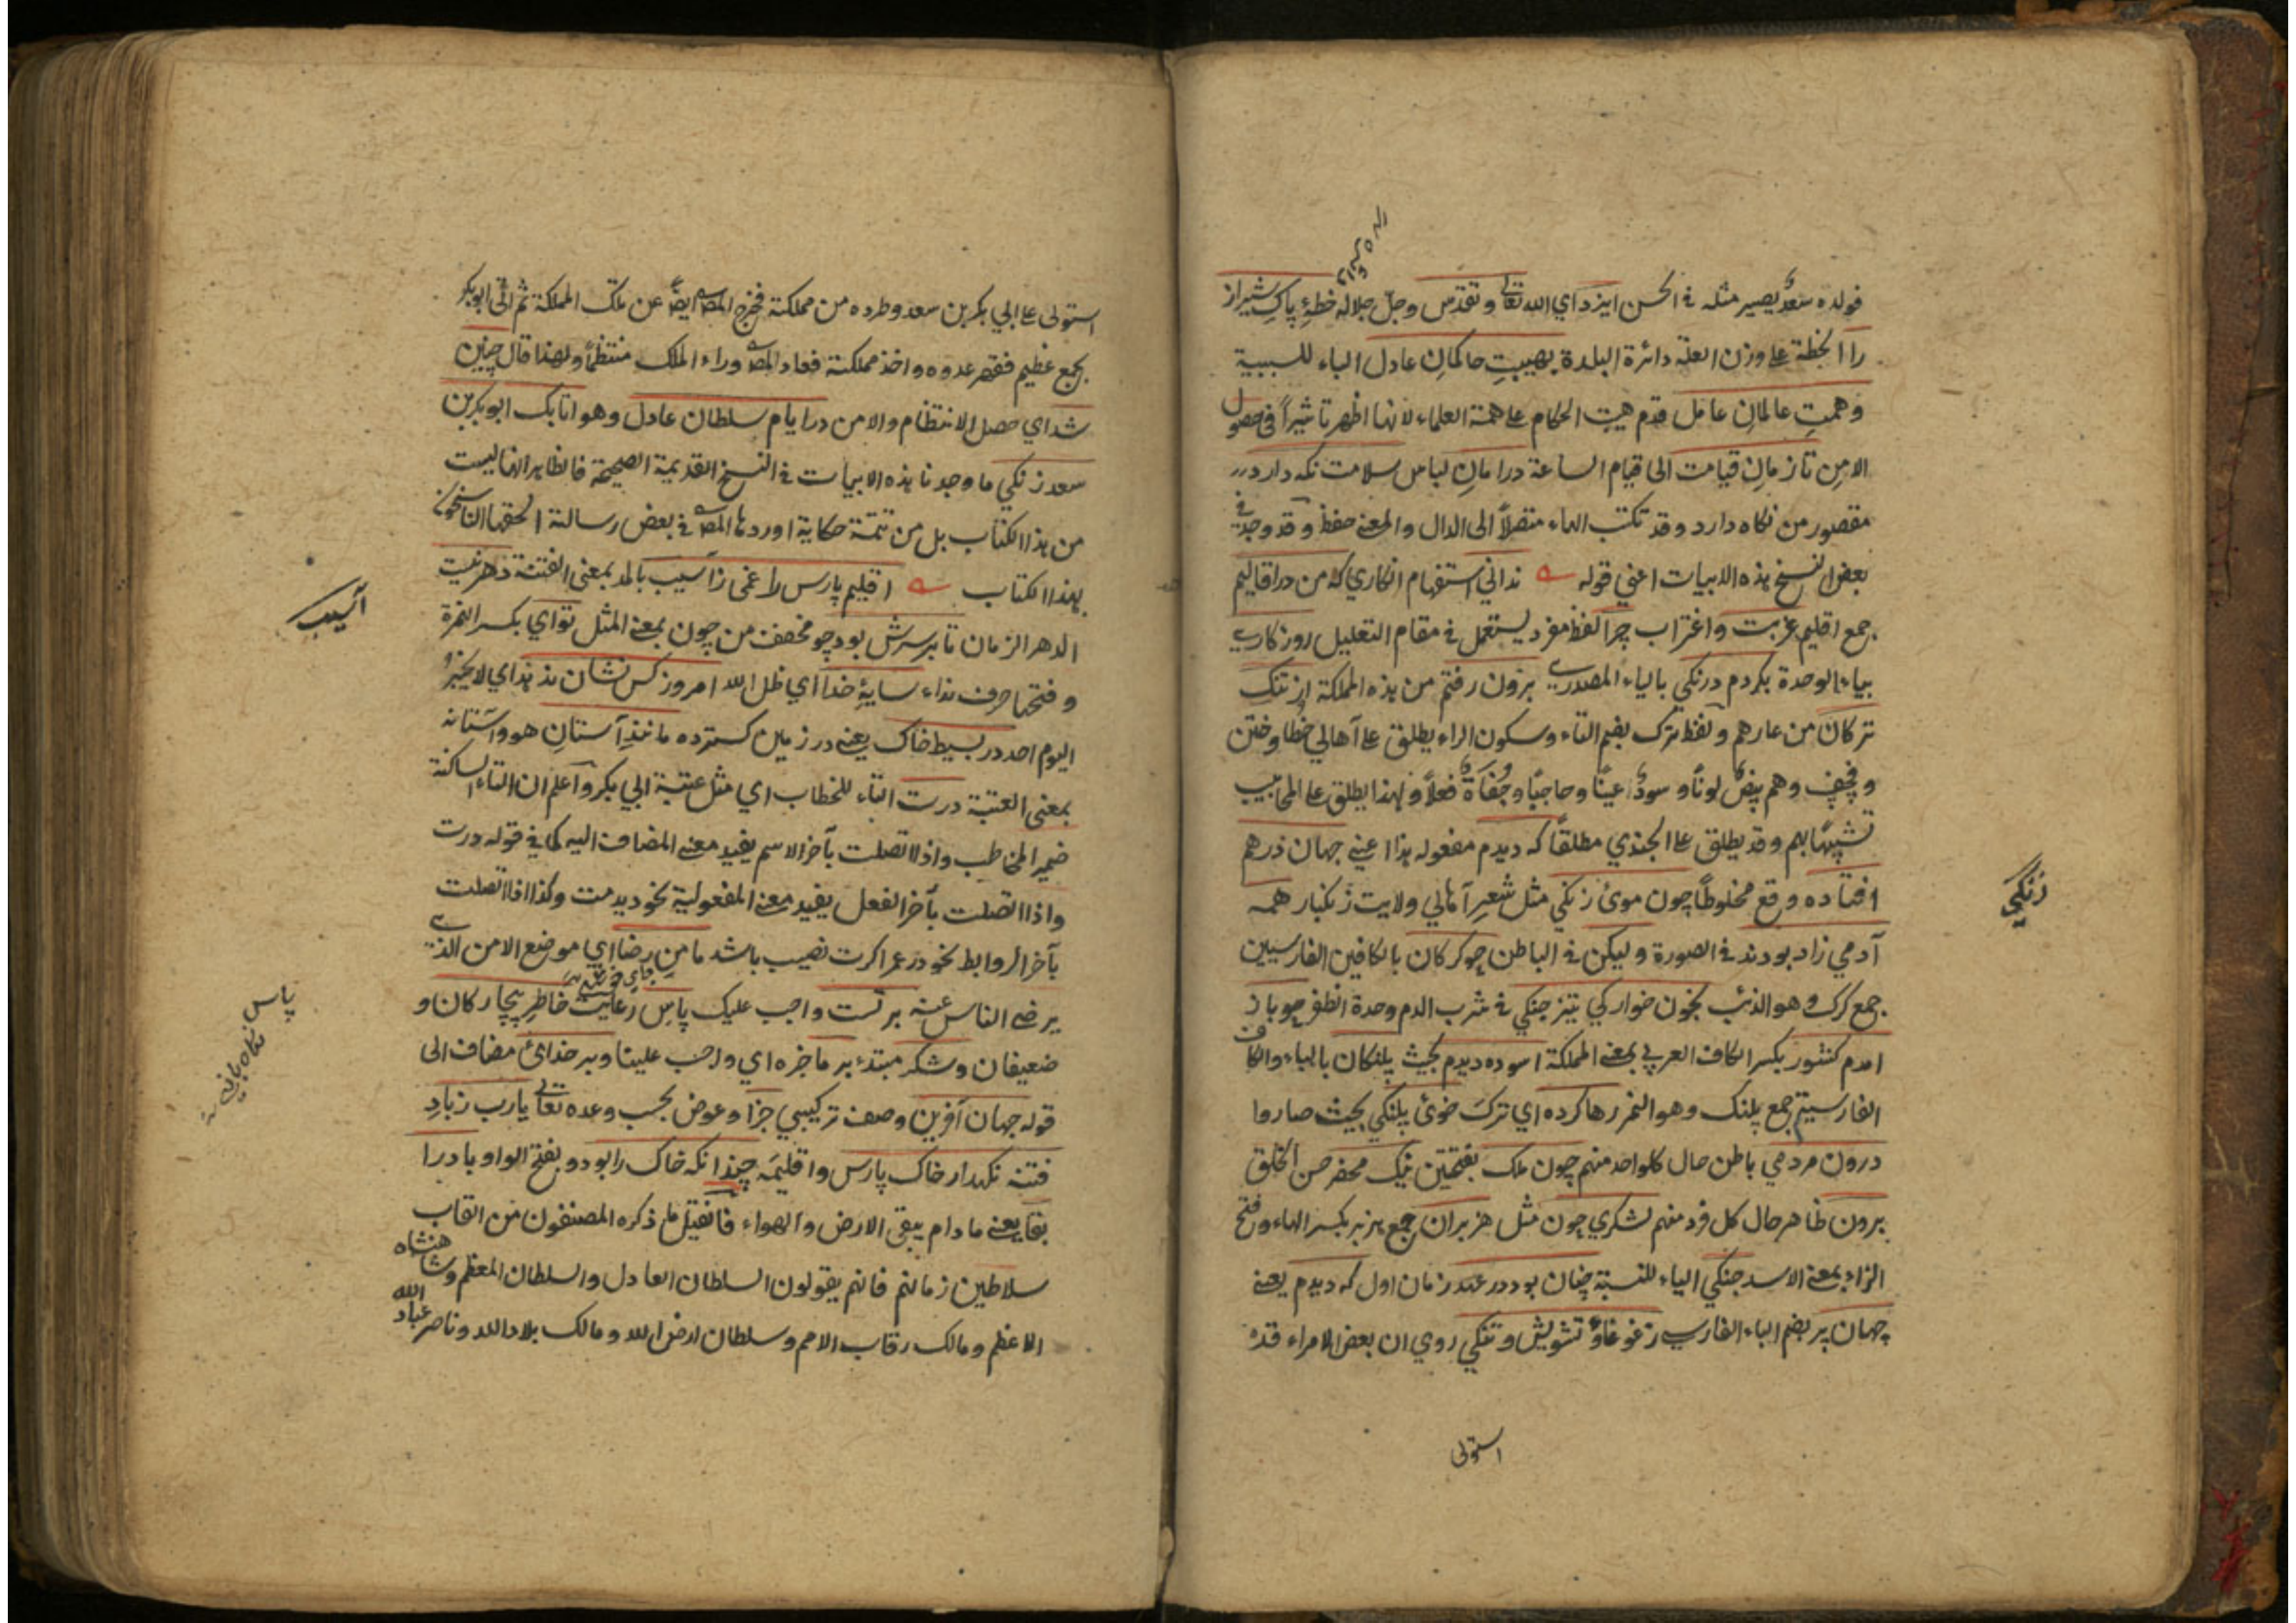 فولده سعدٌ يصير مثله في الحسن ايزد اي الله تعالى وتقدس وجلّ جلاله خطهٔ پاكِ شيراز
را الخطة على وزن العلة دائرة البلدة بهيبتِ حاكمانِ عادل الباء للسببية
وهمتِ عالمانِ عامل قدم هيبت الحكام على همة العلماء لانها اظهر تاثيراً في حصول
الامن تا زمانِ قيامت الى قيام الساعة در امانِ لباس سلامت نكه دارد
مقصور من نكاه دارد وقد تكتب الهاء متصلاً الى الدال والمعنى حفظ وقد وجد في
بعض النسخ هذه الابيات اعني قوله ندانى استفهام انكاري كه من در اقاليم
جمع اقليم غربت واغتراب چرا لفظ مفرد يستعمل في مقام التعليل روزكاري
بياء الوحدة بكردم درنكي بالياء المصدري برون رفتم من هذه المملكة از ننك
تركان من عارهم ولفظ ترك بضم التاء وسكون الراء يطلق على اهالي خطا وختن
وقفچق وهم بيضٌ لوناً وسودٌ عيناً وحاجباً وجُفاةٌ فعلاً ولهذا يطلق على المحابيب
تشبيهاً بهم وقد يطلق على الجندي مطلقاً كه ديدم مفعوله هذا اعني جهان درهم
افتاده وقع مخلوطاً چون موى زنكي مثل شعر اهالي ولايت زنكبار همه
آدمي زاد بودند في الصورة وليكن في الباطن چو كركان بالكافين الفارسيين
جمع كرك وهو الذئب بخون خواركي تيز چنكي في شرب الدم وحدة الظفر چو باز
امدم كشور بكسر الكاف العربي بمعنى المملكة اسوده ديدم بحيث پلنكان بالباء والكاف
الفارسيتين جمع پلنك وهو النمر رها كرده اي ترك خوى پلنكي بحيث صاروا
درون مردمي باطن حال كل واحد منهم چون ملك بفتحتين نيك محضر حسن الخلق
برون ظاهر حال كل فرد منهم لشكري چون مثل هزبران جمع هزبر بكسر الهاء وفتح
الزاء بمعنى الاسد جنكي الياء للنسبة چنان بود در عهد زمان اول كه ديدم يعني
جهان پر بضم الباء الفارسي ز غوغا وتشويش وتنكي روي ان بعض الامراء قد
استولى
زنكي
استولى على ابي بكر بن سعد وطرده من مملكته فخرج المص ايضاً عن تلك المملكة ثم اتى ابو بكر
بجمع عظيم فقهر عدوه واخذ مملكته فعاد المص وراء الملك منتظماً ولهذا قال چنين
شد اي حصل الانتظام والامن در ايام سلطان عادل وهو اتابك ابو بكر بن
سعد زنكي ما وجدنا هذه الابيات في النسخ القديمة الصحيحة فالظاهر انها ليست
من هذا الكتاب بل من تتمة حكاية اوردها المص في بعض رسالته الحقها الناسخون
بهذا الكتاب اقليم پارس را غمى ز آسيب بالمد بمعنى الفتنة دهر نيست
الدهر الزمان تا بر سرش بود چو مخفف من چون بمعنى المثل تو اي بكسر الهمزة
وفتحها حرف نداء سايهٔ خدا اي ظل الله امروز كس نشان ندهد اي لا يخبر
اليوم احد در بسيط خاك يعني در زمين كسترده مانندِ آستان هو وآستانه
بمعنى العتبة درت التاء للخطاب اي مثل عتبة ابي بكر واعلم ان التاء الساكنة
ضمير المخاطب واذا اتصلت بآخر الاسم يفيد معنى المضاف اليه كما في قوله درت
واذا اتصلت بآخر الفعل يفيد معنى المفعولية نحو ديدمت وكذا اذا اتصلت
بآخر الروابط نحو در عمر اكرت نصيب باشد مامن رضا اي موضع الامن الذي
يرضى الناس عنه بر تست واجب عليك پاس رعايت خاطر بيچاركان و
ضعيفان وشكر مبتدء بر ما خبره اي واجب علينا وبر خداى مضاف الى
قوله جهان آفرين وصف تركيبي جزا وعوض بحسب وعده تعالى يا رب ز بادِ
فتنه نكهدار خاك پارس واقليمه چندانكه خاك را بود وبفتح الواو باد را
بقا يعني ما دام يبقى الارض والهواء فان قيل ما ذكره المصنفون من القاب
سلاطين زمانهم فانهم يقولون السلطان العادل والسلطان المعظم وشاهنشاه
الاعظم ومالك رقاب الامم وسلطان ارض الله ومالك بلاد الله وناصر عباد الله
آسيب
پاس نكاه بانى